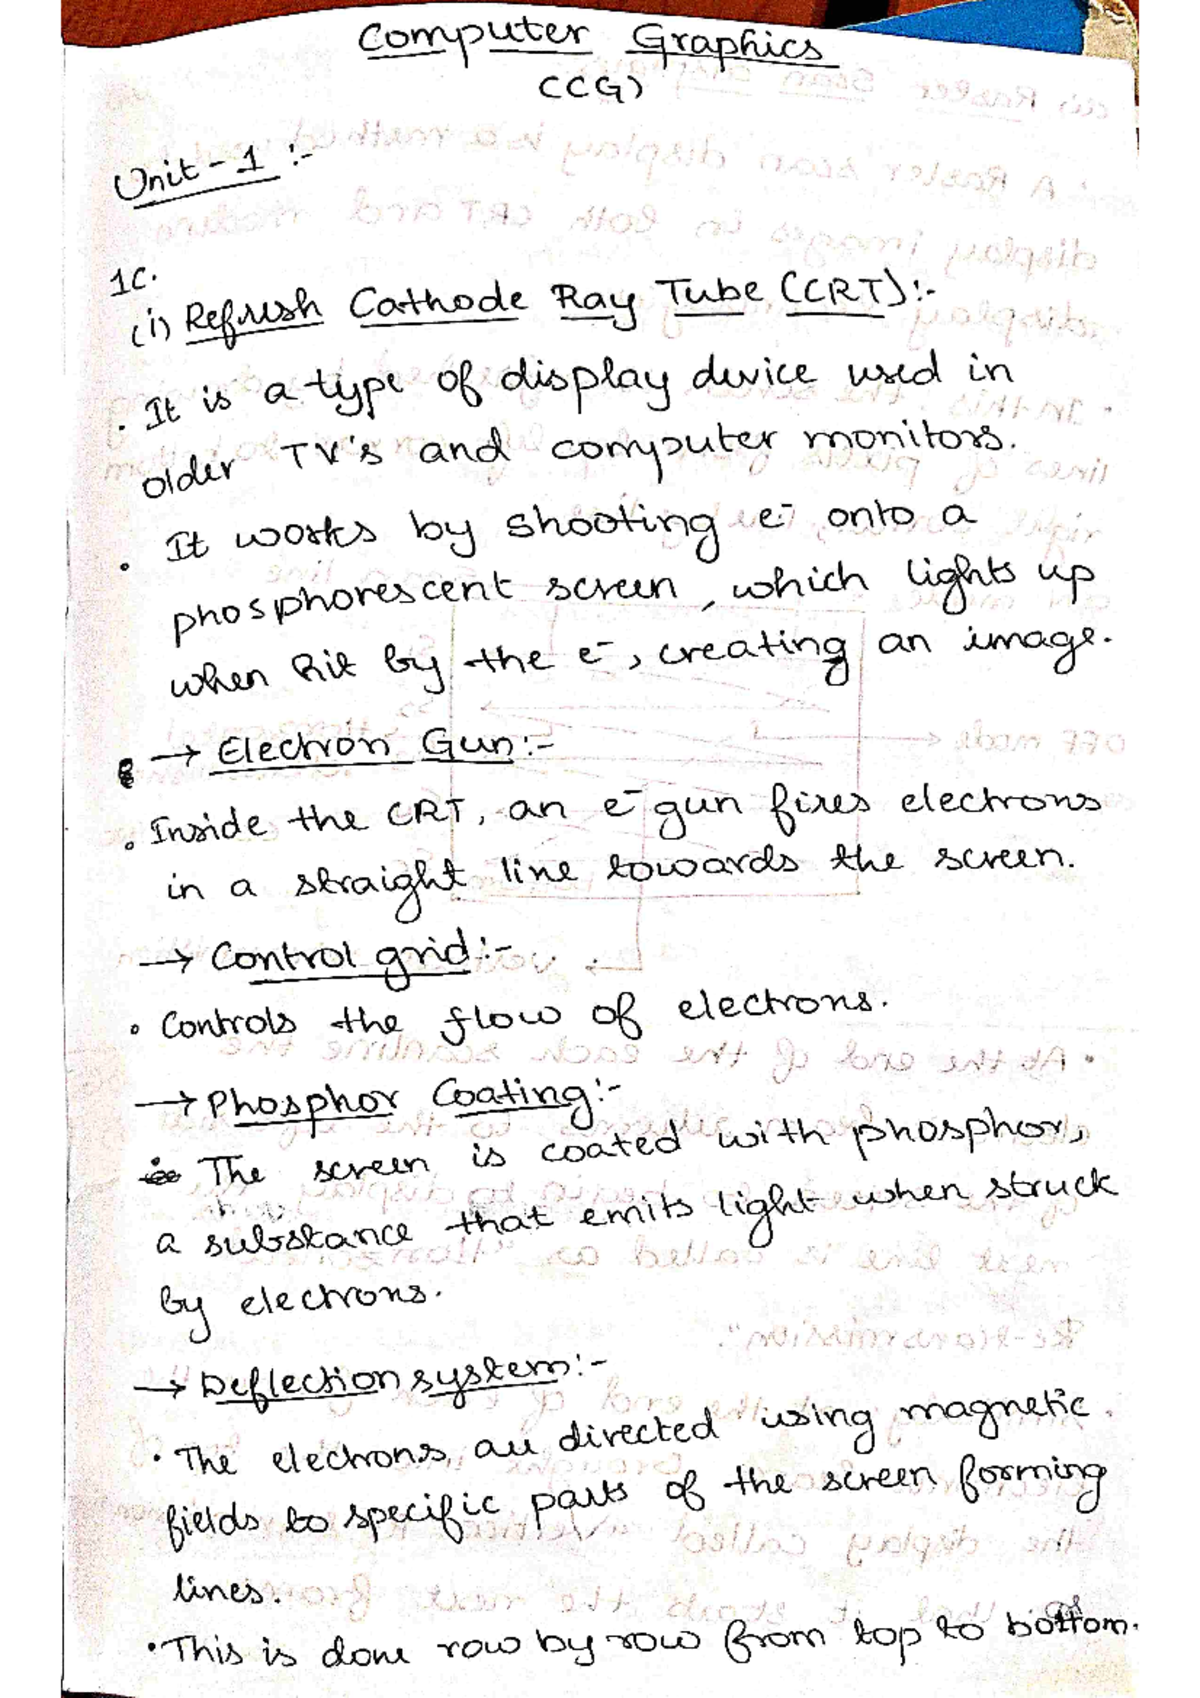 Computer Graphics
(CG)
Unit - 1 :-
1C.
(i) Refresh Cathode Ray Tube (CRT):-
• It is a type of display device used in
older TV's and computer monitors.
• It works by shooting e⁻ onto a
phosphorescent screen, which lights up
when hit by the e⁻, creating an image.
→ Electron Gun:-
• Inside the CRT, an e⁻ gun fires electrons
in a straight line towards the screen.
→ Control grid:-
• Controls the flow of electrons.
→ Phosphor Coating:-
The screen is coated with phosphor,
a substance that emits light when struck
by electrons.
→ Deflection system:-
• The electrons are directed using magnetic
fields to specific parts of the screen forming
lines.
• This is done row by row from top to bottom.